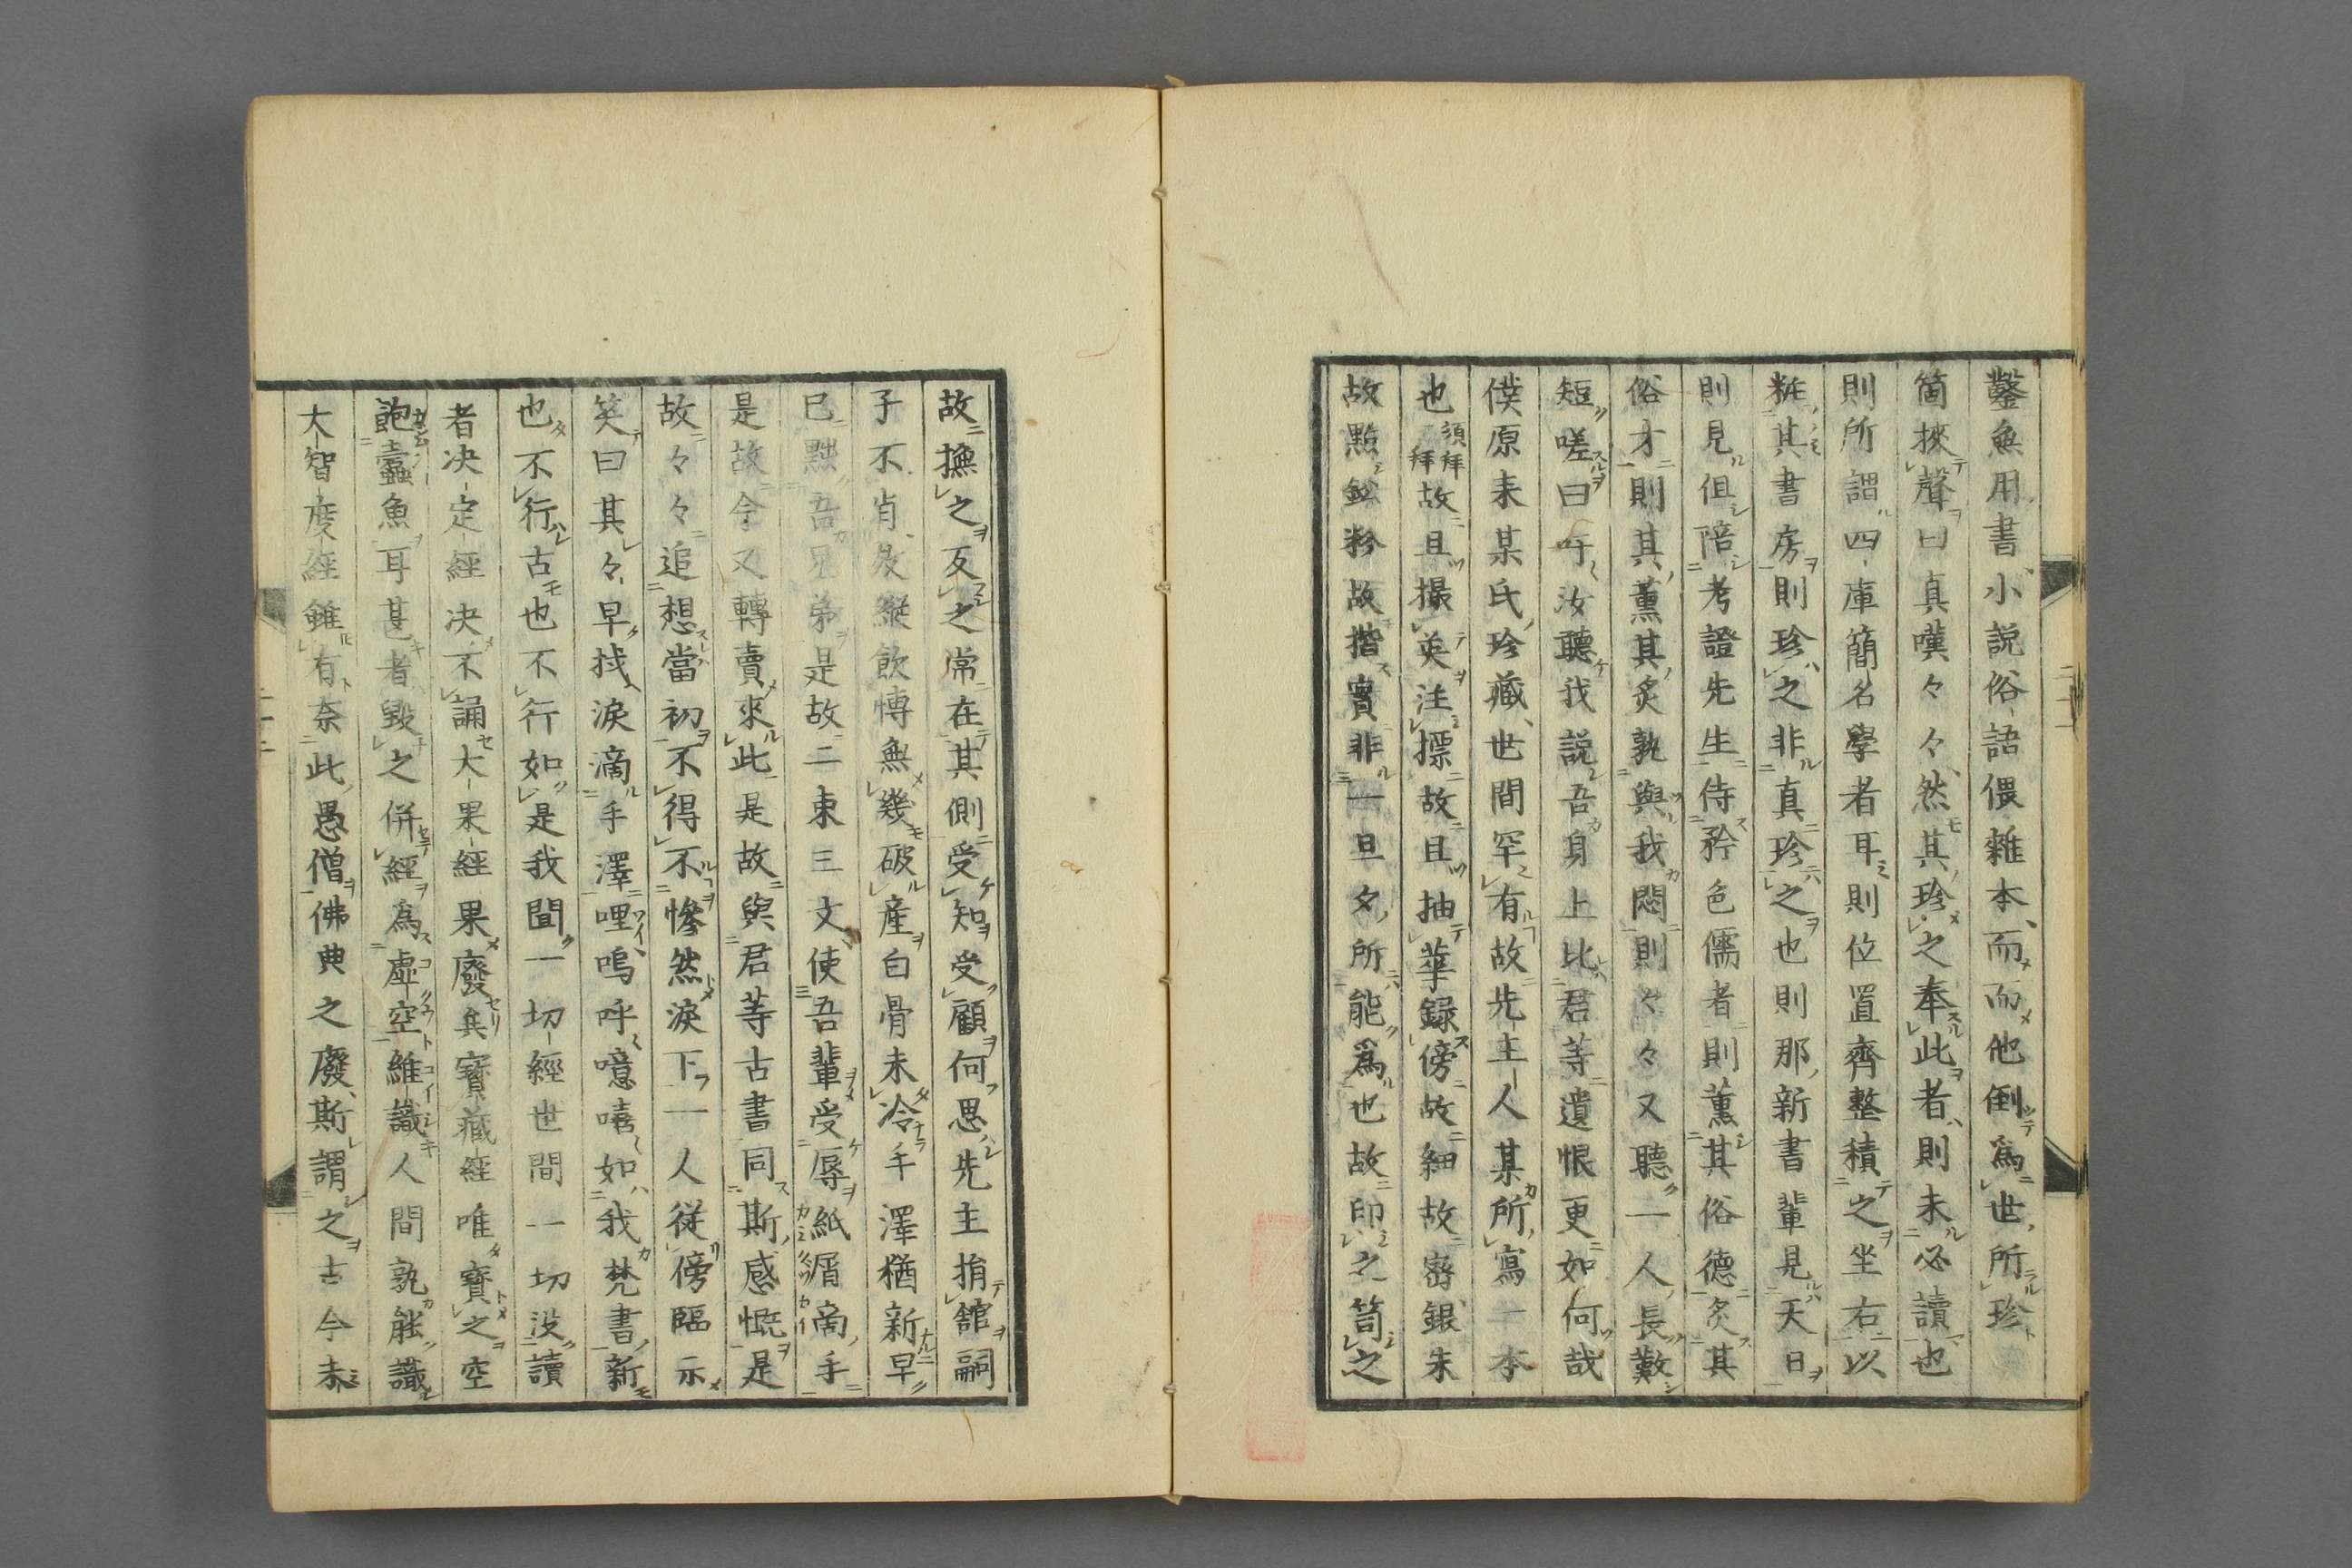 鑿無用書、小説俗語偎雜本、而而他倒爲世所珍
箇捩聲曰真嘆々々然其珍之奉此者、則未必讀也
則所謂四庫簡名學者耳則位置齊整積之坐右以
粧其書房則珍之非真珍之也則那新書輩見天日
則見但陪考證先生侍矜色儒者則薫其俗德炙其
俗才則其薫其炙孰與我悶則々々又聽一人長歎
短嗟曰吁汝聽我説吾身上比君等遺恨更如何哉
僕原来某氏珍藏、世間罕有故先主人某所寫一本
也須拜拜故且撮英注摽故且抽華録傍故細故密銀朱
故點鉛粉故揩實非一旦夕所能爲也故印之笥之
故撫之友之常在其側受知受顧何思先主捐舘嗣
子不肖及縱飲博無幾破產白骨未冷手澤猶新早
已黜吾兄弟是故二束三文使吾輩受辱紙屑商手
是故今又轉賣來此是故與君等古書同斯感慨是
故々々追想當初不得不慘然淚下一人從傍臨示
笑曰其々早拭淚滴手澤哩嗚呼噫嘻如我梵書新
也不行古也不行如是我聞一切經世間一切没讀
者决定經决不誦大果經果廢矣寶藏經唯寶之空
飽蠹魚耳甚者毀之併經爲虛空維識人間孰能識
大智度經雖有奈此愚僧佛典之廢斯謂之古今未